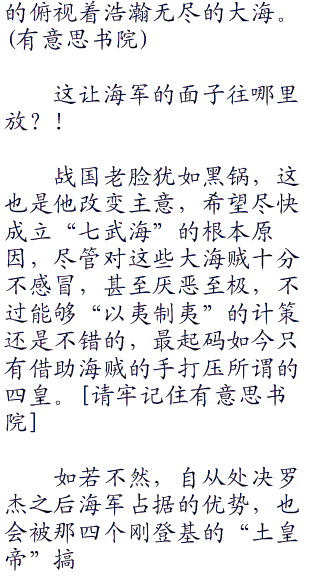 的俯视着浩瀚无尽的大海。
(有意思书院)
这让海军的面子往哪里
放?!
战国老脸犹如黑锅，这
也是他改变主意，希望尽快
成立“七武海”的根本原
因，尽管对这些大海贼十分
不感冒，甚至厌恶至极，不
过能够“以夷制夷”的计策
还是不错的，最起码如今只
有借助海贼的手打压所谓的
四皇。[请牢记住有意思书
院]
如若不然，自从处决罗
杰之后海军占据的优势，也
会被那四个刚登基的“土皇
帝”搞